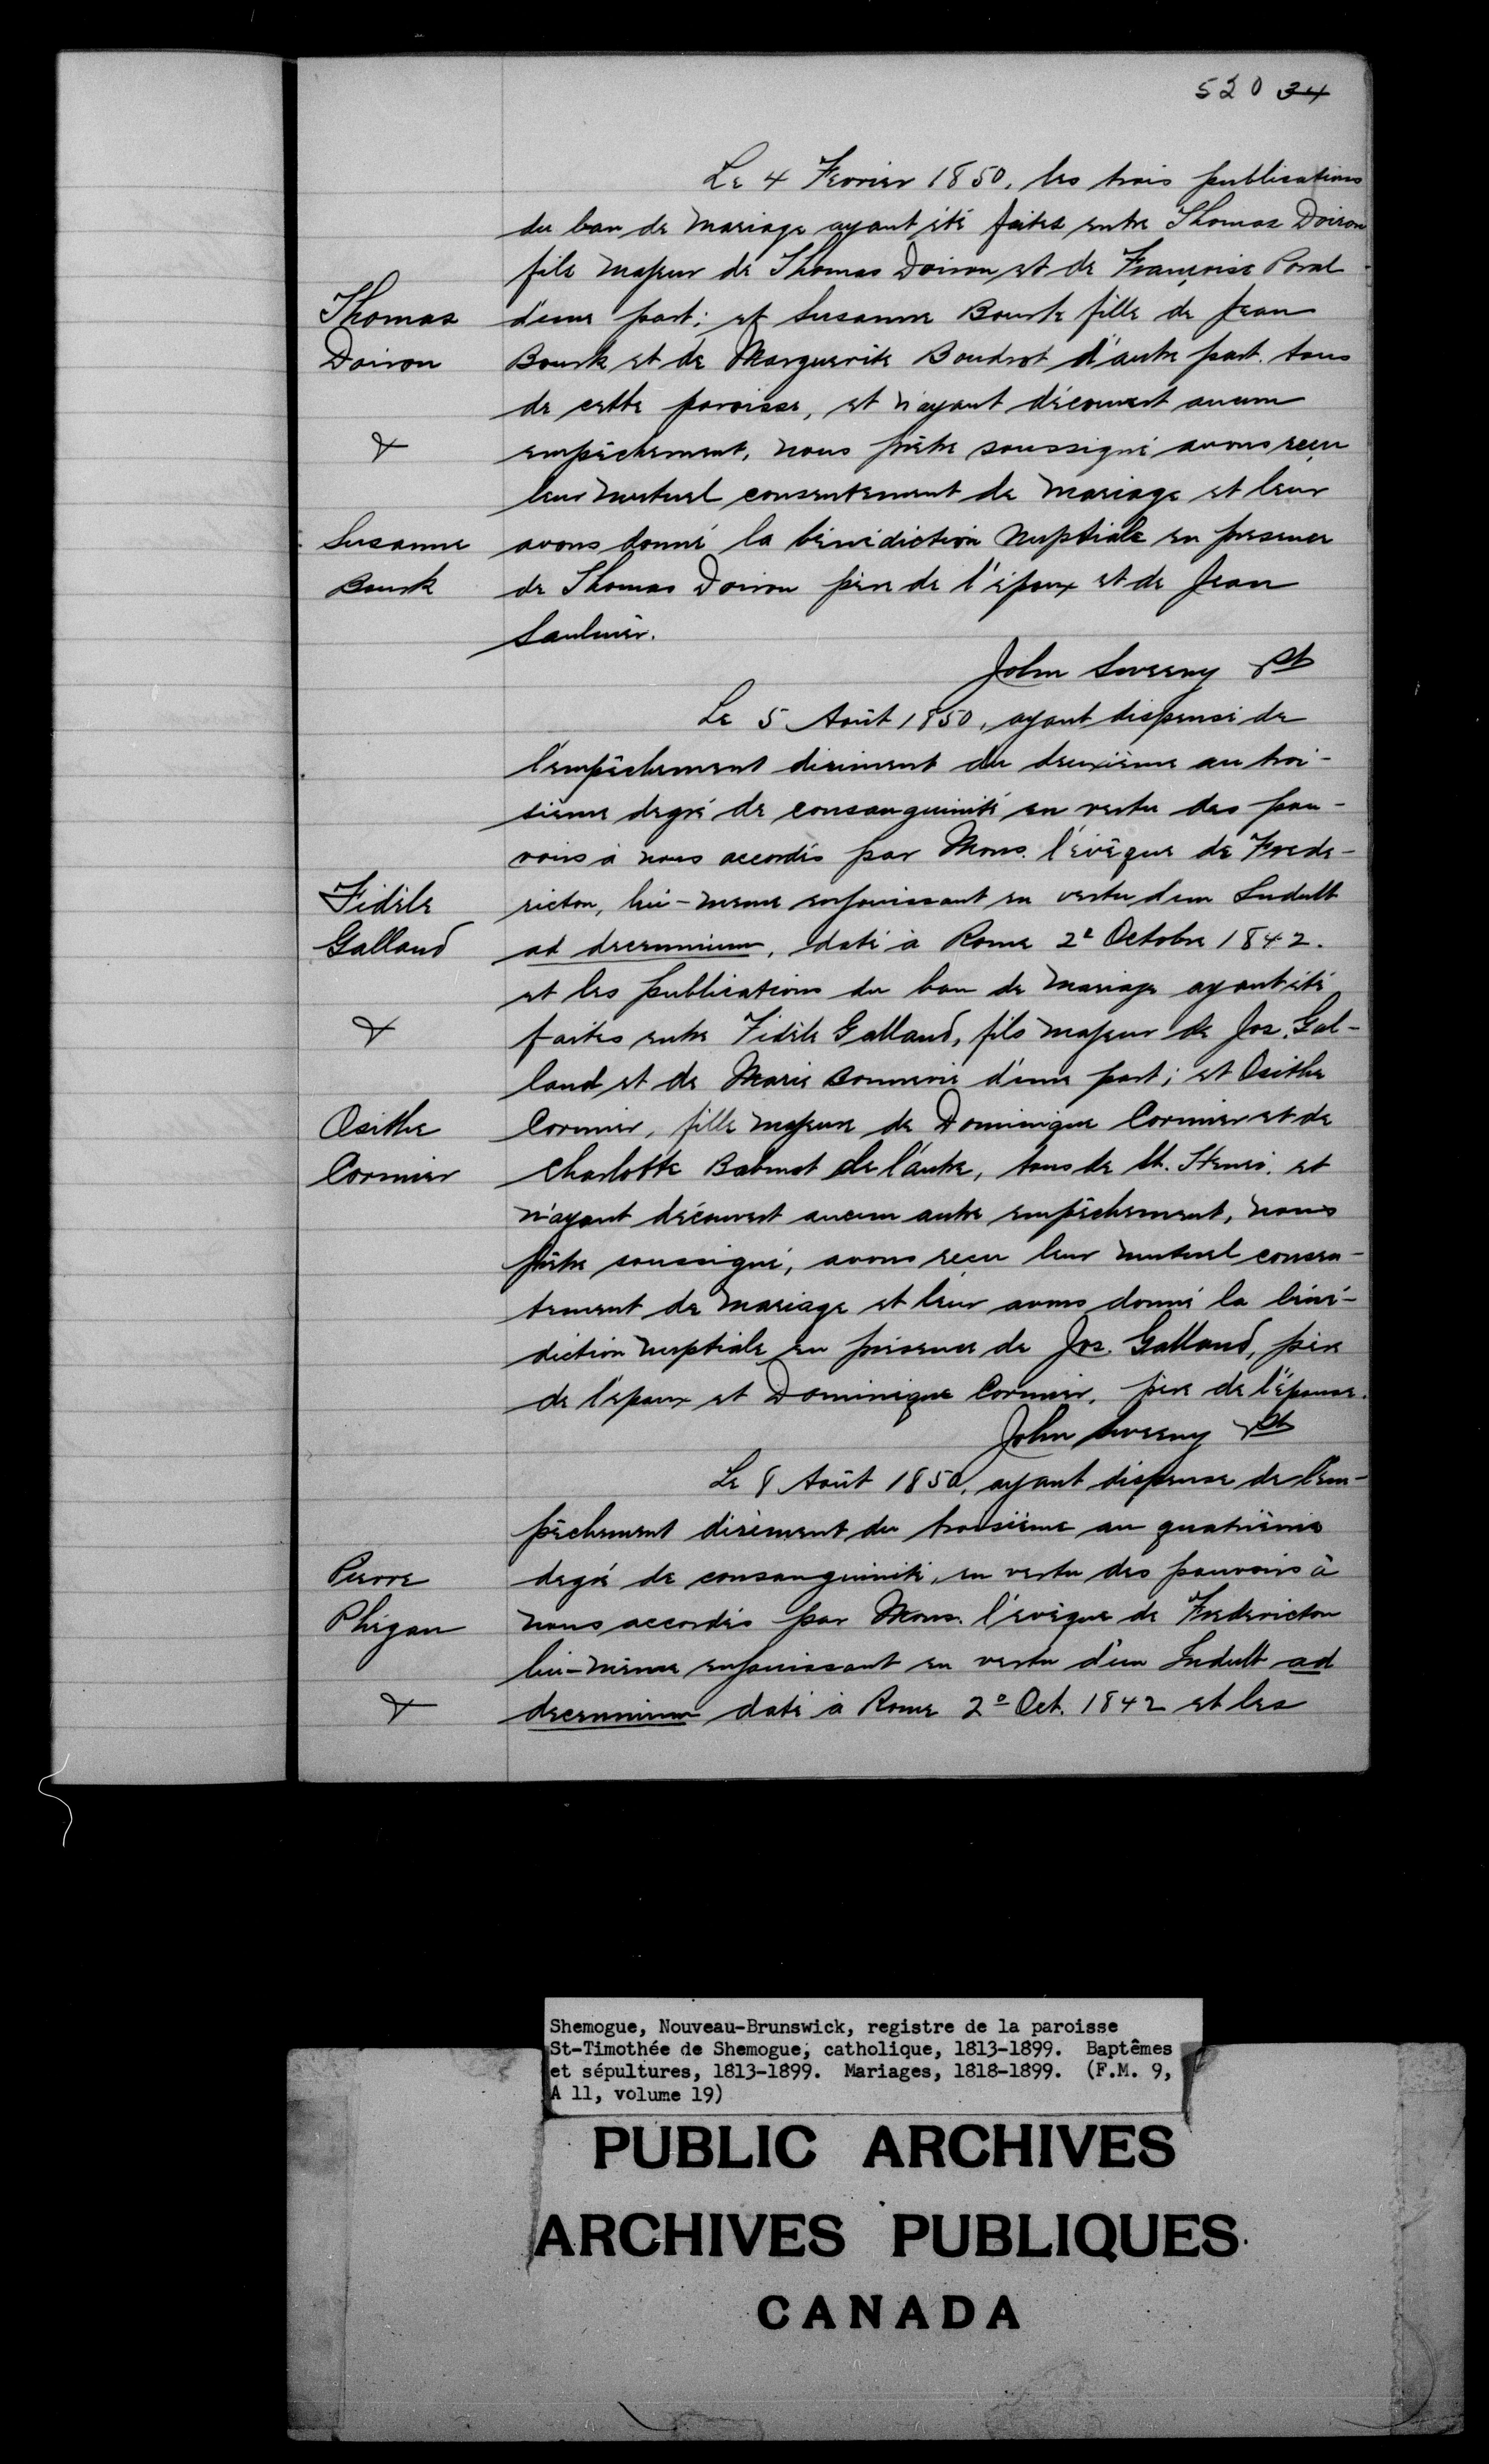 520 34
Le 4 Fevrier 1850, les trois publications
du ban de mariage ayant été faites entre Thomas Doiron
fils majeur de Thomas Doiron et de Françoise
Thomas
d'une part; et Susanne Bourk fille de Jean
Doiron
Bourk et de Marguerite Boudrot d'autre part. tous
de cette paroisse, et n'ayant découvert aucun
&
empêchement, nous prêtre soussigné avons reçu
leur mutuel consentement de mariage et leur
Susanne
avons donné la bénédiction nuptiale en presence
Bourk
de Thomas Doiron père de l'époux et de Jean
Saulnier.
John Sweeny Pt
Le 5 Août 1850, ayant dispensé de
l'empêchement diriment du deuxième au troi-
sième degré de consanguinité en vertu des pou-
voirs à nous accordés par Mons. l'évêque de Frede-
Fidèle
ricton, lui-meme enjouissant en vertu d'un Indult
Galland
ad decennium, daté à Rome 2e Octobre 1842.
et les publications du ban de mariage ayant été
&
faites entre Fidèle Galland, fils majeur de Jos. Gal-
land et de Marie d'une part; et Osithe
Osithe
Cormier, fille majeure de Dominique Cormier et de
Cormier
Charlotte Babinot de l'autre, tous de St. Henri. et
n'ayant découvert aucun autre empêchement, nous
prêtre soussigné, avons reçu leur mutuel consen-
tement de mariage et leur avons donné la béné-
diction nuptiale en présence de Jos. Galland, père
de l'epoux et Dominique Cormier, père de l'épouse.
John Sweeny Pt
Le 8 Août 1850, ayant dispense de l'em-
pêchement diriment du troisième au quatrième
Pierre
degré de consanguinité, en vertu des pouvoirs à
Phégan
nous accordés par Mons. l'evêque de Fredericton
lui-même enjouissant en vertu d'un Indult ad
&
decennium daté à Rome 2o Oct. 1842 et les
Shemogue, Nouveau-Brunswick, registre de la paroisse
St-Timothée de Shemogue, catholique, 1813-1899. Baptêmes
et sépultures, 1813-1899. Mariages, 1818-1899. (F.M. 9,
A 11, volume 19)
PUBLIC ARCHIVES
ARCHIVES PUBLIQUES
CANADA